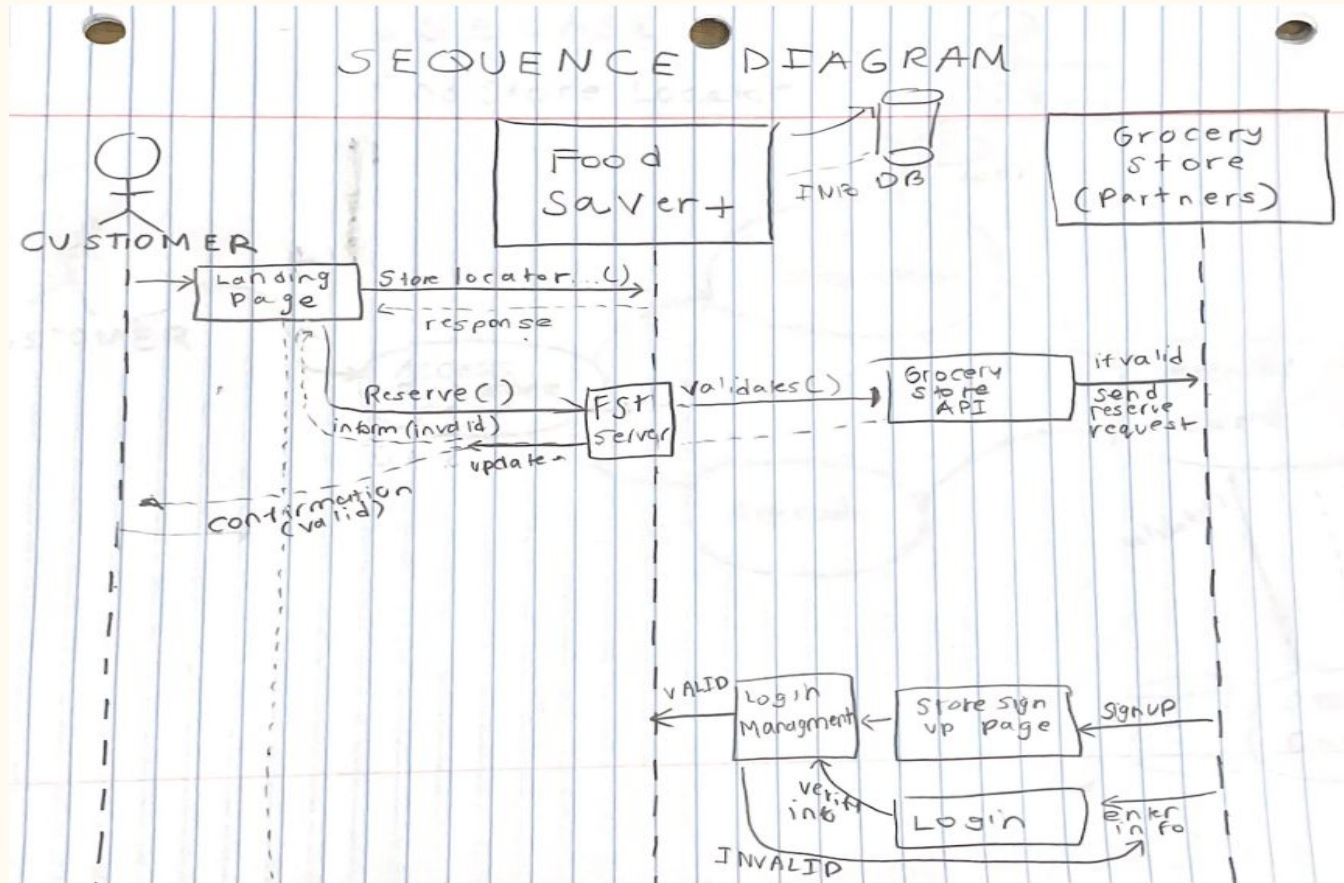 SEQUENCE DIAGRAM
Food
Saver+
INFO DB
Grocery
Store
(Partners)
CUSTIOMER
Landing
Page
Store locator...()
response
Reserve()
inform (invalid)
update
FS+
Server
validates()
Grocery
Store
API
if valid
send
reserve
request
confirmation
(valid)
VALID
Login
Managment
Store sign
up page
signup
verify
info
Login
enter
info
INVALID